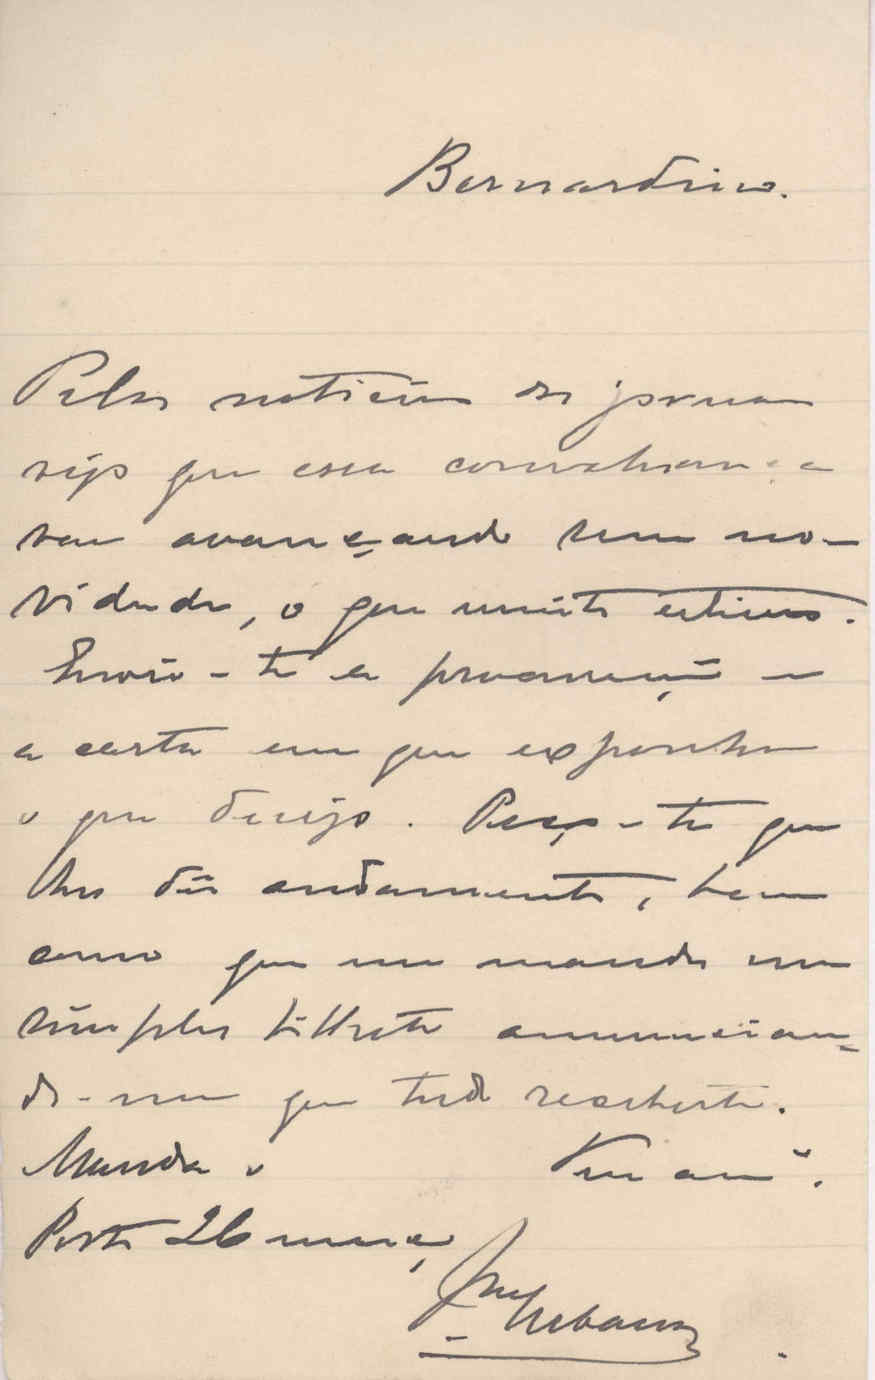 Bernardino.
Pelas noticias dos jornaes
vejo que essa convalescença
vae avançando sem no-
vidade, o que muito estimo.
Envio-te a procuração e
a carta em que exponho
o que desejo. Peço-te que
lhes dês andamento, bem
como que me mandes um
simples bilhete annuncian-
do-me que tudo recebeste.
Manda o Teu am.º
Porto 26 março
José Urbano